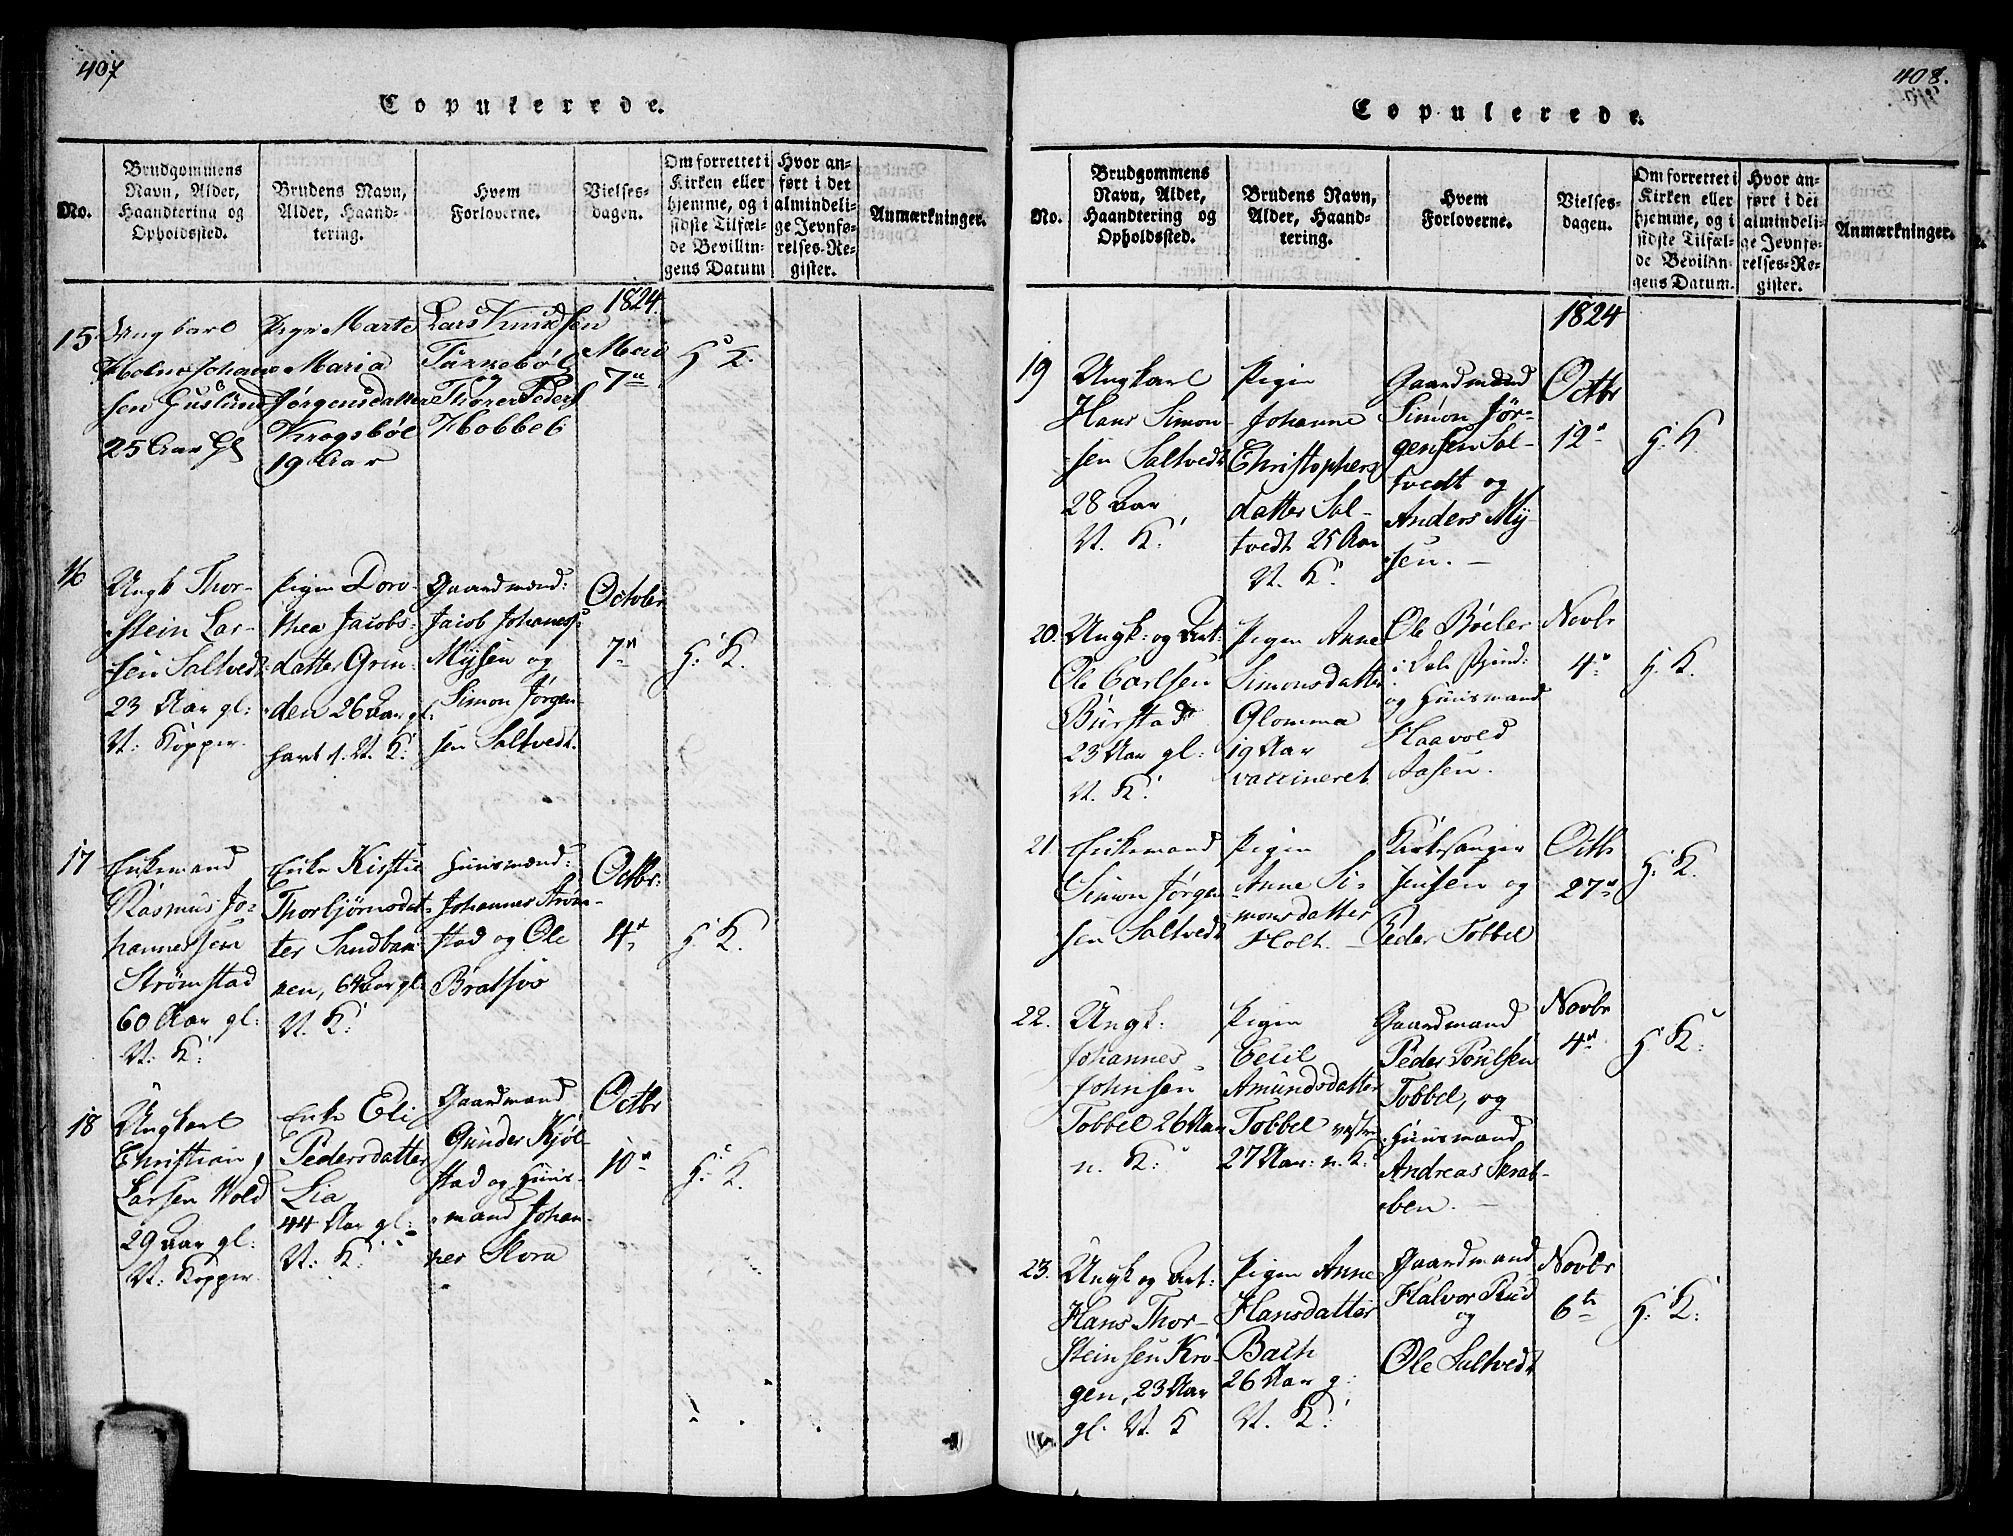 407
Copulerede.
No.
Brudgommens
Navn, Alder,
Haandtering og
Opholdssted.
Brudens Navn,
Alder, Haand-
tering.
Hvem
Forloverne.
Vielses-
dagen.
Om forrettet i
Kirken eller
hjemme, og i
sidste Tilfæl-
de Bevillin-
gens Datum
Hvor an-
ført i det
almindeli-
ge Jevnfø-
relses-Re-
gister.
Anmærkninger.
1824.
15.
Ungkarl
Johan
sen Guslund
25 Aar Gl
Pigen Marte
Maria
Jørgensdatter
Krogsbøl
19 Aar
Lars Knudsen
Tunnebøl
Thorer Peders
Hobbel
Mai
7de
H: K.
16
Ungk Thor-
stein Lar-
sen Saltvedt
23 Aar gl:
V: Kopper.
Pigen Doro-
thea Jacobs-
datter Grin-
den 26 Aar gl:
havt d. V. K:
Gaardmænd:
Jacob Johaness:
Mysen og
Simon Jørgen-
sen Saltvedt.
October
7de
H: K.
17
Enkemand
Rasmus Jo-
hannessen
Strømstad
60 Aar gl:
V: K:
Enke Kirstie
Thorbjørnsdat-
ter Sandbak
nen, 64 Aar gl:
V. K:
Huusmænd:
Johannes Strøm-
stad og Ole
Bratfos
Octbr:
4de
H: K.
18
Ungkarl
Christian
Larsen Wold
29 Aar gl:
V: Kopper.
Enke Eli
Pedersdatter
Lia
44 Aar gl:
V: K:
Gaardmand
Gunder Kjøl-
stad og Huus-
mand Johan-
nes Slora
Octbr
10de
H: K.
408.
Copulerede.
No.
Brudgommens
Navn, Alder,
Haandtering og
Opholdssted.
Brudens Navn,
Alder, Haand-
tering.
Hvem
Forloverne.
Vielses-
dagen.
Om forrettet i
Kirken eller
hjemme, og i
sidste Tilfæl-
de Bevillin-
gens Datum.
Hvor an-
ført i det
almindeli-
ge Jevnfø-
relses-Re-
gister.
Anmærkninger.
1824
19
Ungkarl
Hans Simon-
sen Saltvedt
28 Aar
V. K:
Pigen
Johanne
Christophers
datter Sal-
tvedt 25 Aar
V. K:
Gaardmænd
Simon Jør-
gensen Sal-
tvedt og
Anders My
sen. —
Octbr
12te
H: K.
20.
Ungk: og Art:
Ole Carlsen
Burstad
23 Aar gl:
V. K:
Pigen Anne
Simonsdatter
Glomma
19 Aar
vaccineret
Ole Bøeler
og Huusmand
Haavold
Aasen.
Novbr
4de
H. K.
21
Enkemand
Simon Jørgen
sen Saltvedt
Pigen
Anne Si-
monsdatter
Holt. —
Kirkesanger
Jensen og
Peder Tobbel
Octb
27de
H: K.
22.
Ungk:
Johannes
Johnsen
Tobbel 26 Aar
n. K:
Pigen
Cecil
Amundsdatter
Tobbel vestre
27 Aar: n. K:
Gaardmand
Peder Poulsen
Tobbel, og
Huusmand
Andreas Skrab-
ben. —
Novbr
4de
H: K:
23.
Ungk og Art:
Hans Thor-
steinsen Kro-
gen, 23 Aar
gl. V. K
Pigen Anne
Hansdatter
Bach
26 Aar g:
V. K:
Gaardmand
Halvor Rud
og
Ole Saltvedt
Novbr
6te
H: K: